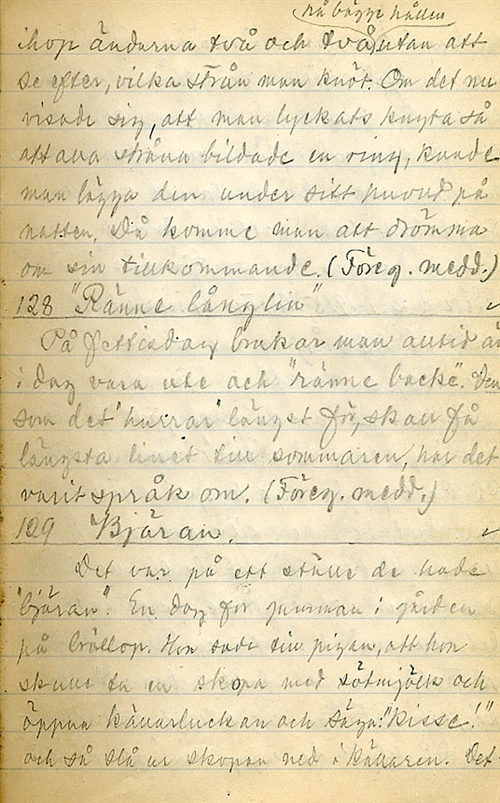 på bägge hållen
ihop ändarna två och två utan att
se efter, vilka strån man knöt. Om det nu
visade sig, att man lyckats knyta så
att alla stråna bildade en ring, kunde
man lägga den under sitt huvud på
natten. Då komme man att drömma
om sin tillkommande. (Föreg. medd.)
128 "Ränne långlin"
På fettisdag brukar man alltid än
i dag vara ute och "ränne backe". Den
som det "hurrar" längst för, skall få
längsta linet till sommaren, har det
varit språk om. (Föreg. medd.)
129 Bjäran.
Det var på ett ställe de hade
"bjäran". En dag för gumman i gården
på bröllop. Hon sade till pigan, att hon
skulle ta en skopa med sötmjölk och
öppna källarluckan och säga: "Kisse!"
och så slå ur skopan ned i källaren. Det